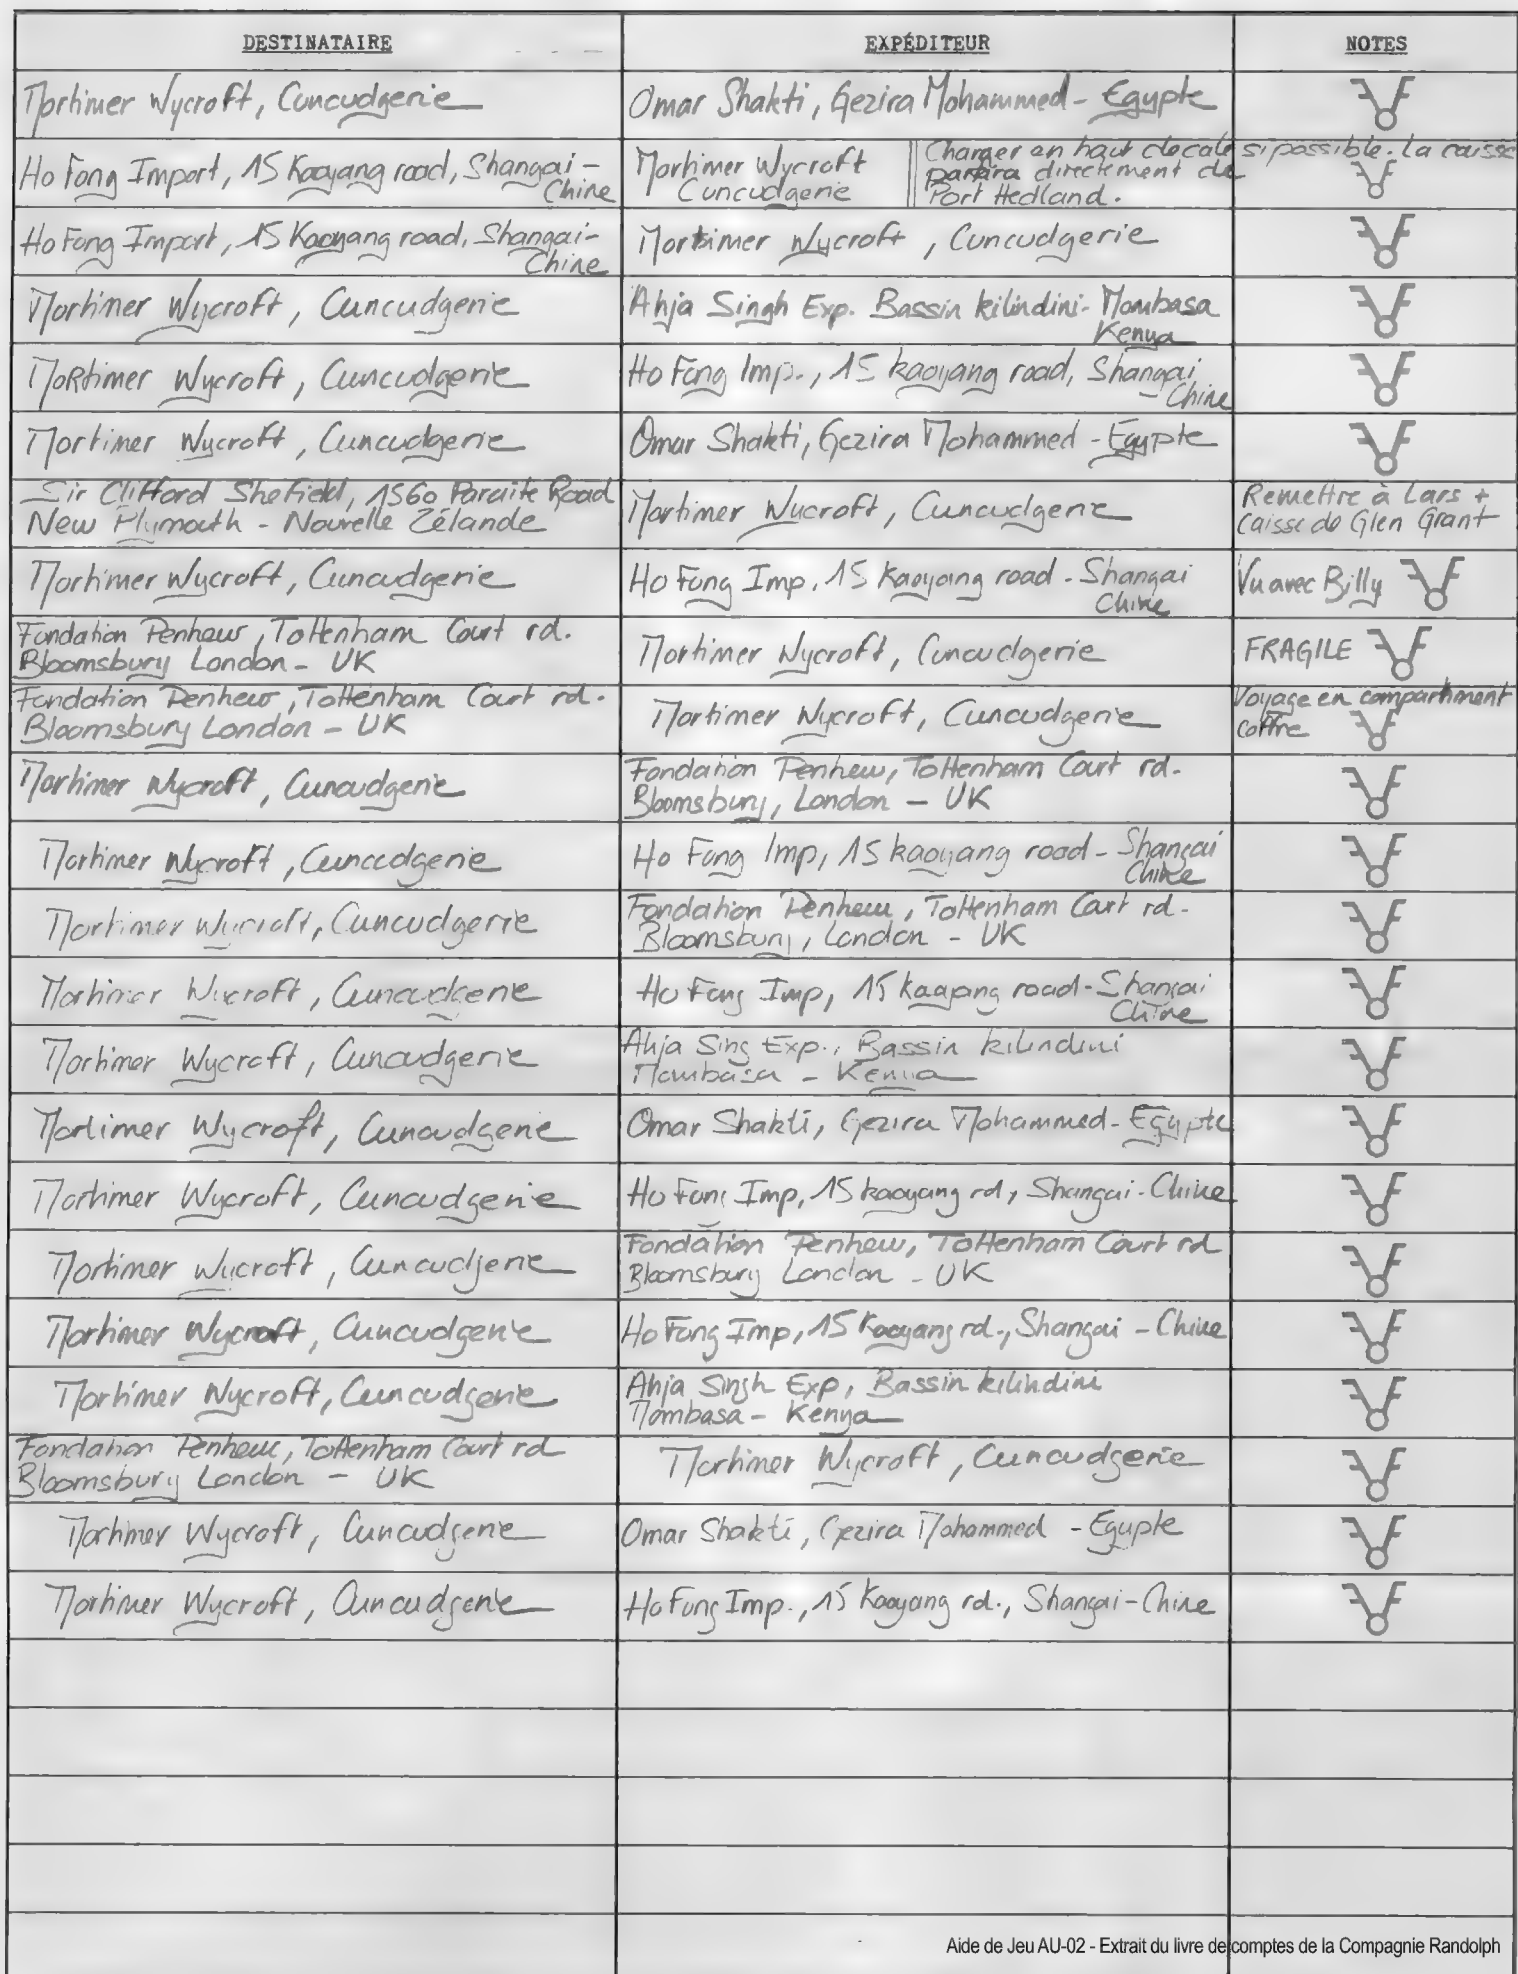 DESTINATAIRE EXPÉDITEUR NOTES
Mortimer Wycroft, Cuncudgerie Omar Shakti, Gezira Mohammed - Egypte
Ho Fong Import, 15 Kaoyang road, Shangai - Chine Mortimer Wycroft Cuncudgerie Charger en haut de cale si possible. La caisse partira directement de Port Hedland.
Ho Fong Import, 15 Kaoyang road, Shangai - Chine Mortimer Wycroft, Cuncudgerie
Mortimer Wycroft, Cuncudgerie Ahja Singh Exp. Bassin kilindini - Mombasa Kenya
Mortimer Wycroft, Cuncudgerie Ho Fong Imp., 15 kaoyang road, Shangai - Chine
Mortimer Wycroft, Cuncudgerie Omar Shakti, Gezira Mohammed - Egypte
Sir Clifford Shefield, 1560 Paraite Road New Plymouth - Nouvelle Zélande Mortimer Wycroft, Cuncudgerie Remettre à Lars + caisse de Glen Grant
Mortimer Wycroft, Cuncudgerie Ho Fong Imp. 15 Kaoyang road - Shangai Chine Vu avec Billy
Fondation Penhew, Tottenham Court rd. Bloomsbury London - UK Mortimer Wycroft, Cuncudgerie FRAGILE
Fondation Penhew, Tottenham Court rd. Bloomsbury London - UK Mortimer Wycroft, Cuncudgerie Voyage en compartiment coffre
Mortimer Wycroft, Cuncudgerie Fondation Penhew, Tottenham Court rd. Bloomsbury, London - UK
Mortimer Wycroft, Cuncudgerie Ho Fong Imp, 15 kaoyang road - Shangai Chine
Mortimer Wycroft, Cuncudgerie Fondation Penhew, Tottenham Court rd. Bloomsbury, London - UK
Mortimer Wycroft, Cuncudgerie Ho Fong Imp, 15 kaoyang road - Shangai Chine
Mortimer Wycroft, Cuncudgerie Ahja Sing Exp., Bassin kilindini Mombasa - Kenya
Mortimer Wycroft, Cuncudgerie Omar Shakti, Gezira Mohammed - Egypte
Mortimer Wycroft, Cuncudgerie Ho Fong Imp, 15 kaoyang rd, Shangai - Chine
Mortimer Wycroft, Cuncudgerie Fondation Penhew, Tottenham Court rd Bloomsbury London - UK
Mortimer Wycroft, Cuncudgerie Ho Fong Imp, 15 Kaoyang rd., Shangai - Chine
Mortimer Wycroft, Cuncudgerie Ahja Singh Exp, Bassin kilindini Mombasa - Kenya
Fondation Penhew, Tottenham Court rd Bloomsbury London - UK Mortimer Wycroft, Cuncudgerie
Mortimer Wycroft, Cuncudgerie Omar Shakti, Gezira Mohammed - Egypte
Mortimer Wycroft, Cuncudgerie Ho Fong Imp., 15 Kaoyang rd., Shangai - Chine
Aide de Jeu AU-02 - Extrait du livre de comptes de la Compagnie Randolph